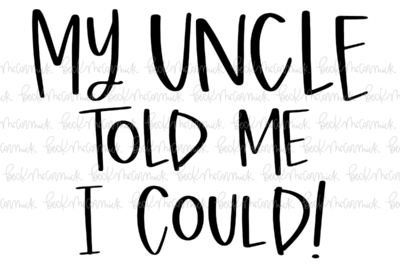 MY UNCLE
TOLD ME
I COULD!